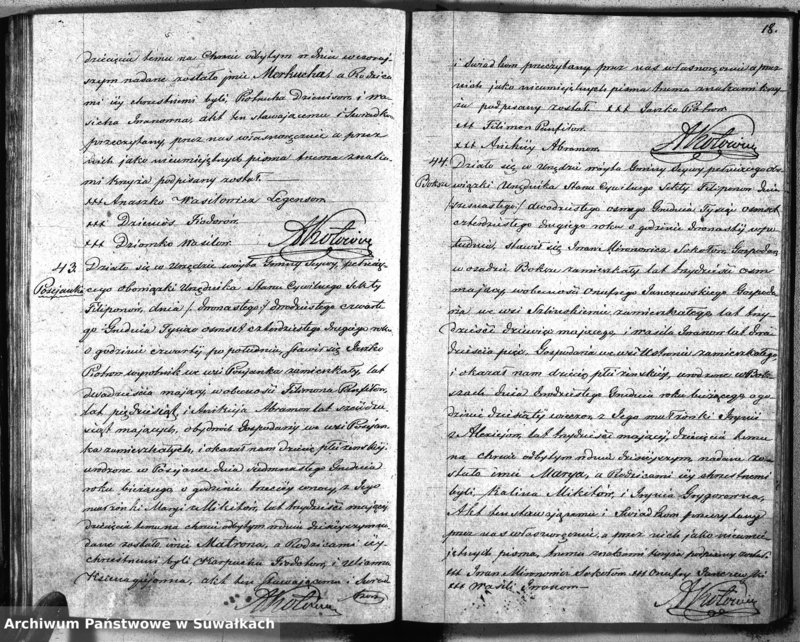 dziecięciu temu na Chrzcie odbytym w dniu wczoraj-
szym nadane zostało imie Morkucha, a Rodzica-
mi iéy chrzestnemi byli Prokucha Dzienisow, i Wa-
sicha Iwanowna, akt ten stawaiącemu i Swiadkom
przeczytany, przez nas własnoręcznie a przez
tychże jako nieumieiętnych pisma trzema znaka-
mi krzyża podpisany został.
+++ Anaszko Wasilowicz Legensow
+++ Dziemiōs Fiodorow.
+++ Dziomko Wasilow.
AKotowicz
43.
Posejanki
Działo się w Urzędzie woyta Gminy Seywy, pełniąc-
cego obowiązki Urzędnika Stanu Cywilnego Sekty
Filiponow, dnia /: dwonastego :/ dwudziestego czwarte-
go Grudnia Tysiąc osmset czterdziestego drugiego roku
o godzinie czwarty po południu, stawił się Jasko
Piotrow wyrobnik we wsi Posejanka zamieszkały, lat
dwadzieścia maiący w obecności Filimona Panfiłow,
lat pięćdziesiąt, i Anikieja Abramow lat sześćdzie-
siąt maiących, obydwóch Gospodarzy we wsi Posejan-
ka zamieszkałych, i okazał nam dziecię płci żenskiéj,
urodzone w Posejance dnia siedmnastego Grudnia
roku bieżącego o godzinie trzeciéy zrana, z Jego
małżonki Maryi z Mikitow, lat trzydzieści maiącéj,
dziecięciu temu na chrzcie odbytym w dniu dzisiejszym na-
dane zostało imie Matrona, a Rodzicami iéy
chrzestnemi byli Karpucha Fiodorow, i Ulianna
akt ten stawaiącemu i Swiad
kom
AKotowicz
18.
i swiadkom przeczytany przez nas własnoręcznie a przez
nich jako nieumieiętnych pisma trzema znakami krzy-
ża podpisany został +++ Jasko Piotrow.
+++ Filimon Panfiłow.
+++ Anikiéy Abramow.
AKotowicz
44.
Boksze
Działo się w Urzędzie woyta Gminy Seywy pełniącego obo-
wiązki Urzędnika Stanu Cywilnego Sekty Filiponow dnia
/: szesnastego :/ dwudziestego osmego Grudnia Tysiąc osmset
czterdziestego drugiego roku o godzinie dwonastéy w po-
łudnie, stawił się Iwan Mironowicz Sokołow, Gospodarz
w osadzie Boksze zamieszkały lat trzydzieści osm
maiący w obecności Onufrego Janczewskiego Gospoda-
rza we wsi zamieszkałego lat trzy-
dzieści dziewięć maiącego i Wasila Iwanow lat dwa-
dzieścia pięć, Gospodarza we wsi Ustroniu zamieszkałego,
i okazał nam dziecię płci żenskiéj, urodzone w Bok-
szach dnia dwudziestego Grudnia roku bieżącego o go-
dzinie dziesiąty wieczor, z Jego małżonki Iryny
z Alexiejow, lat trzydzieści maiącéj, dziecięciu temu
na chrzcie odbytym w dniu dzisiejszym, nadane zo-
stało imie Marya, a Rodzicami iéy chrzestnemi
byli, Kalina Mikitow, i Irynia Grygorowna,
Akt ten stawaiącemu i Swiadkom przeczytany
przez nas własnoręcznie, a przez nich jako nieumie-
iętnych pisma, trzema znakami krzyża podpisany został.
+++ Iwan Mironowicz Sokołow +++ Onufry Janczewski
+++ Wasili Iwanow.
AKotowicz
Archiwum Państwowe w Suwałkach